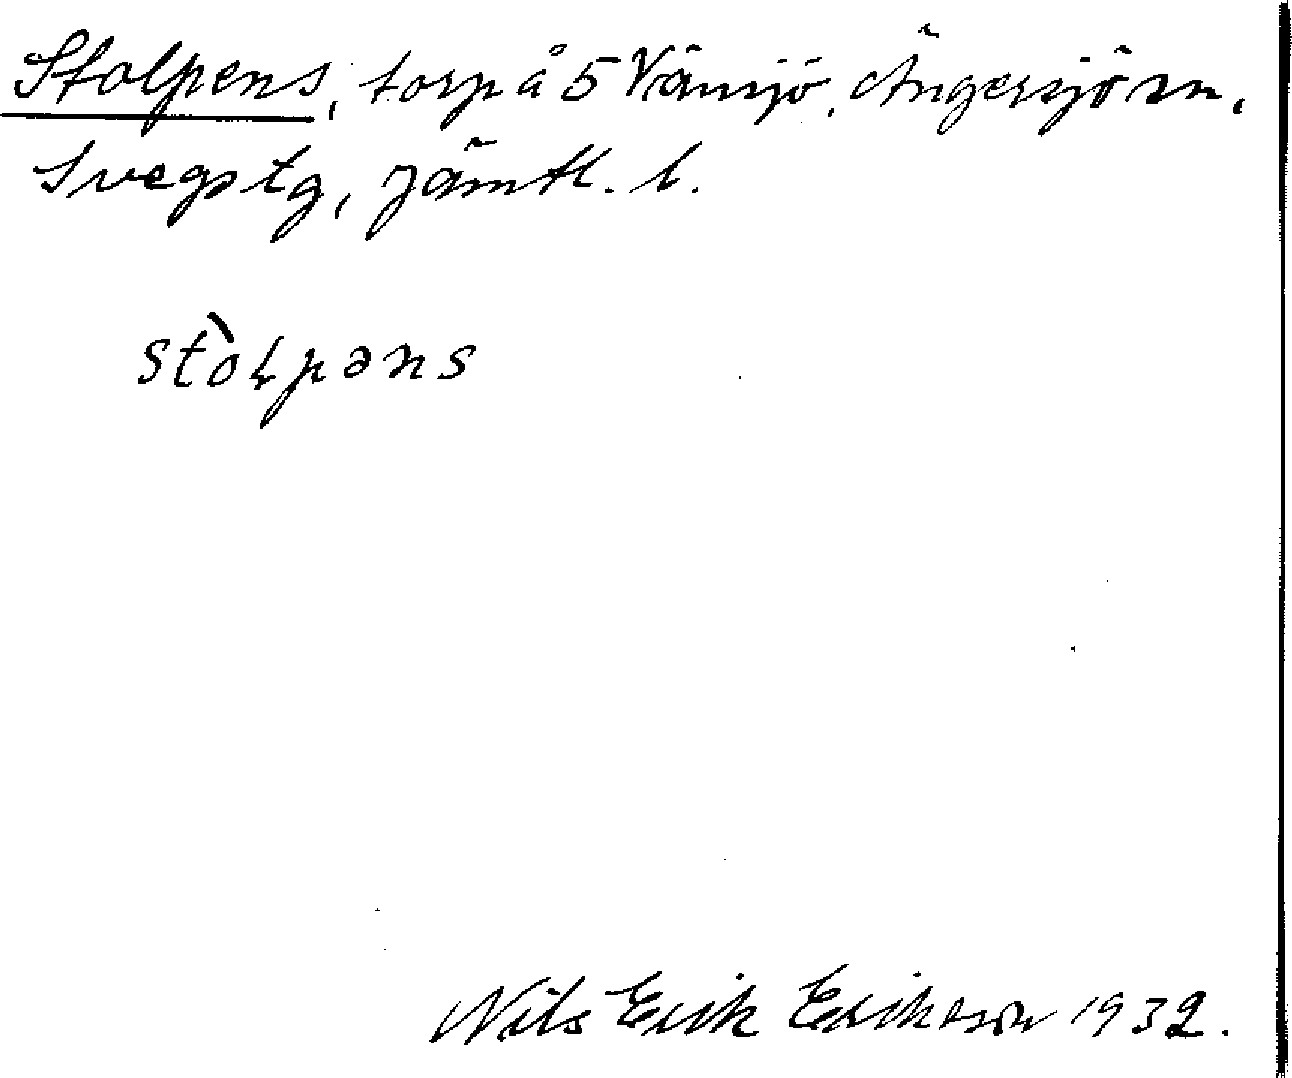 Stolpens, torp å 5 Vänsjö, Ängersjö sn.
Svegs tg, Jämtl. l.
stòɫpəns
Nils Erik Erikson 1932.